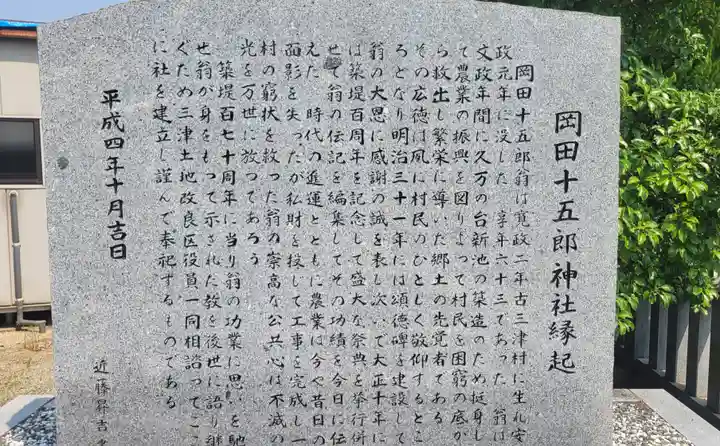 岡田十五郎神社縁起
岡田十五郎翁は寛政二年古三津村に生れ安
政元年に没した 享年六十三であった 翁は
文政年間に久万の台新池の築造のため挺身し
て農業の振興を図りよって村民を困窮の底か
ら救出し繁栄に導いた郷土の先覚者である
その広徳は夙に村民のひとしく敬仰するとこ
ろとなり明治三十一年には頌徳碑を建設して
翁の大恩に感謝の誠を表し次いで大正十年に
は築堤百周年を記念して盛大な祭典を挙行併
せて翁の伝記を編集してその功績を今日に伝
えた 時代の進運とともに農業は今や昔日の
面影を失ったが私財を投じて工事を完成し一
村の窮状を救った翁の崇高な公共心は不滅の
光を万世に放つであろう
築堤百七十周年に当り翁の功業に思いを馳
せ翁が身をもって示された教を後世に語り継
ぐため三津土地改良区役員一同相諮ってここ
に社を建立し謹んで奉祀するものである
平成四年十月吉日
近藤昇吉